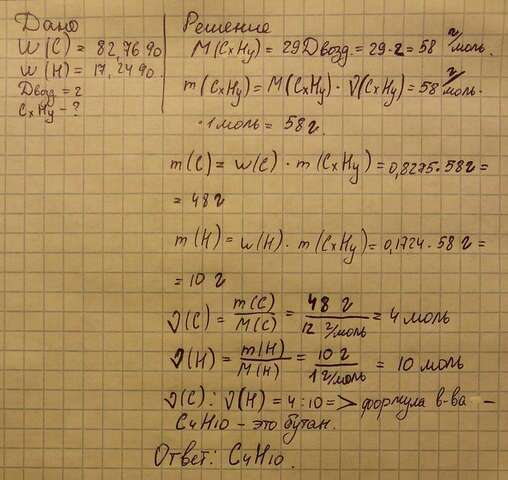 Дано
W(C) = 82,76%
w(H) = 17,24%
Dвозд = 2
CxHy - ?
Решение
M(CxHy) = 29Dвозд. = 29·2 = 58 г/моль.
m(CxHy) = M(CxHy)·ν(CxHy) = 58 г/моль·
·1моль = 58г.
m(C) = w(C)·m(CxHy) = 0,8275·58г =
= 48г
m(H) = w(H)·m(CxHy) = 0,1724·58г =
= 10 г
ν(C) = m(C)/M(C) = 48 г/12 г/моль = 4 моль
ν(H) = m(H)/M(H) = 10 г/1 г/моль = 10 моль
ν(C) : ν(H) = 4 : 10 => формула в-ва -
C4H10 - это бутан.
Ответ: C4H10.